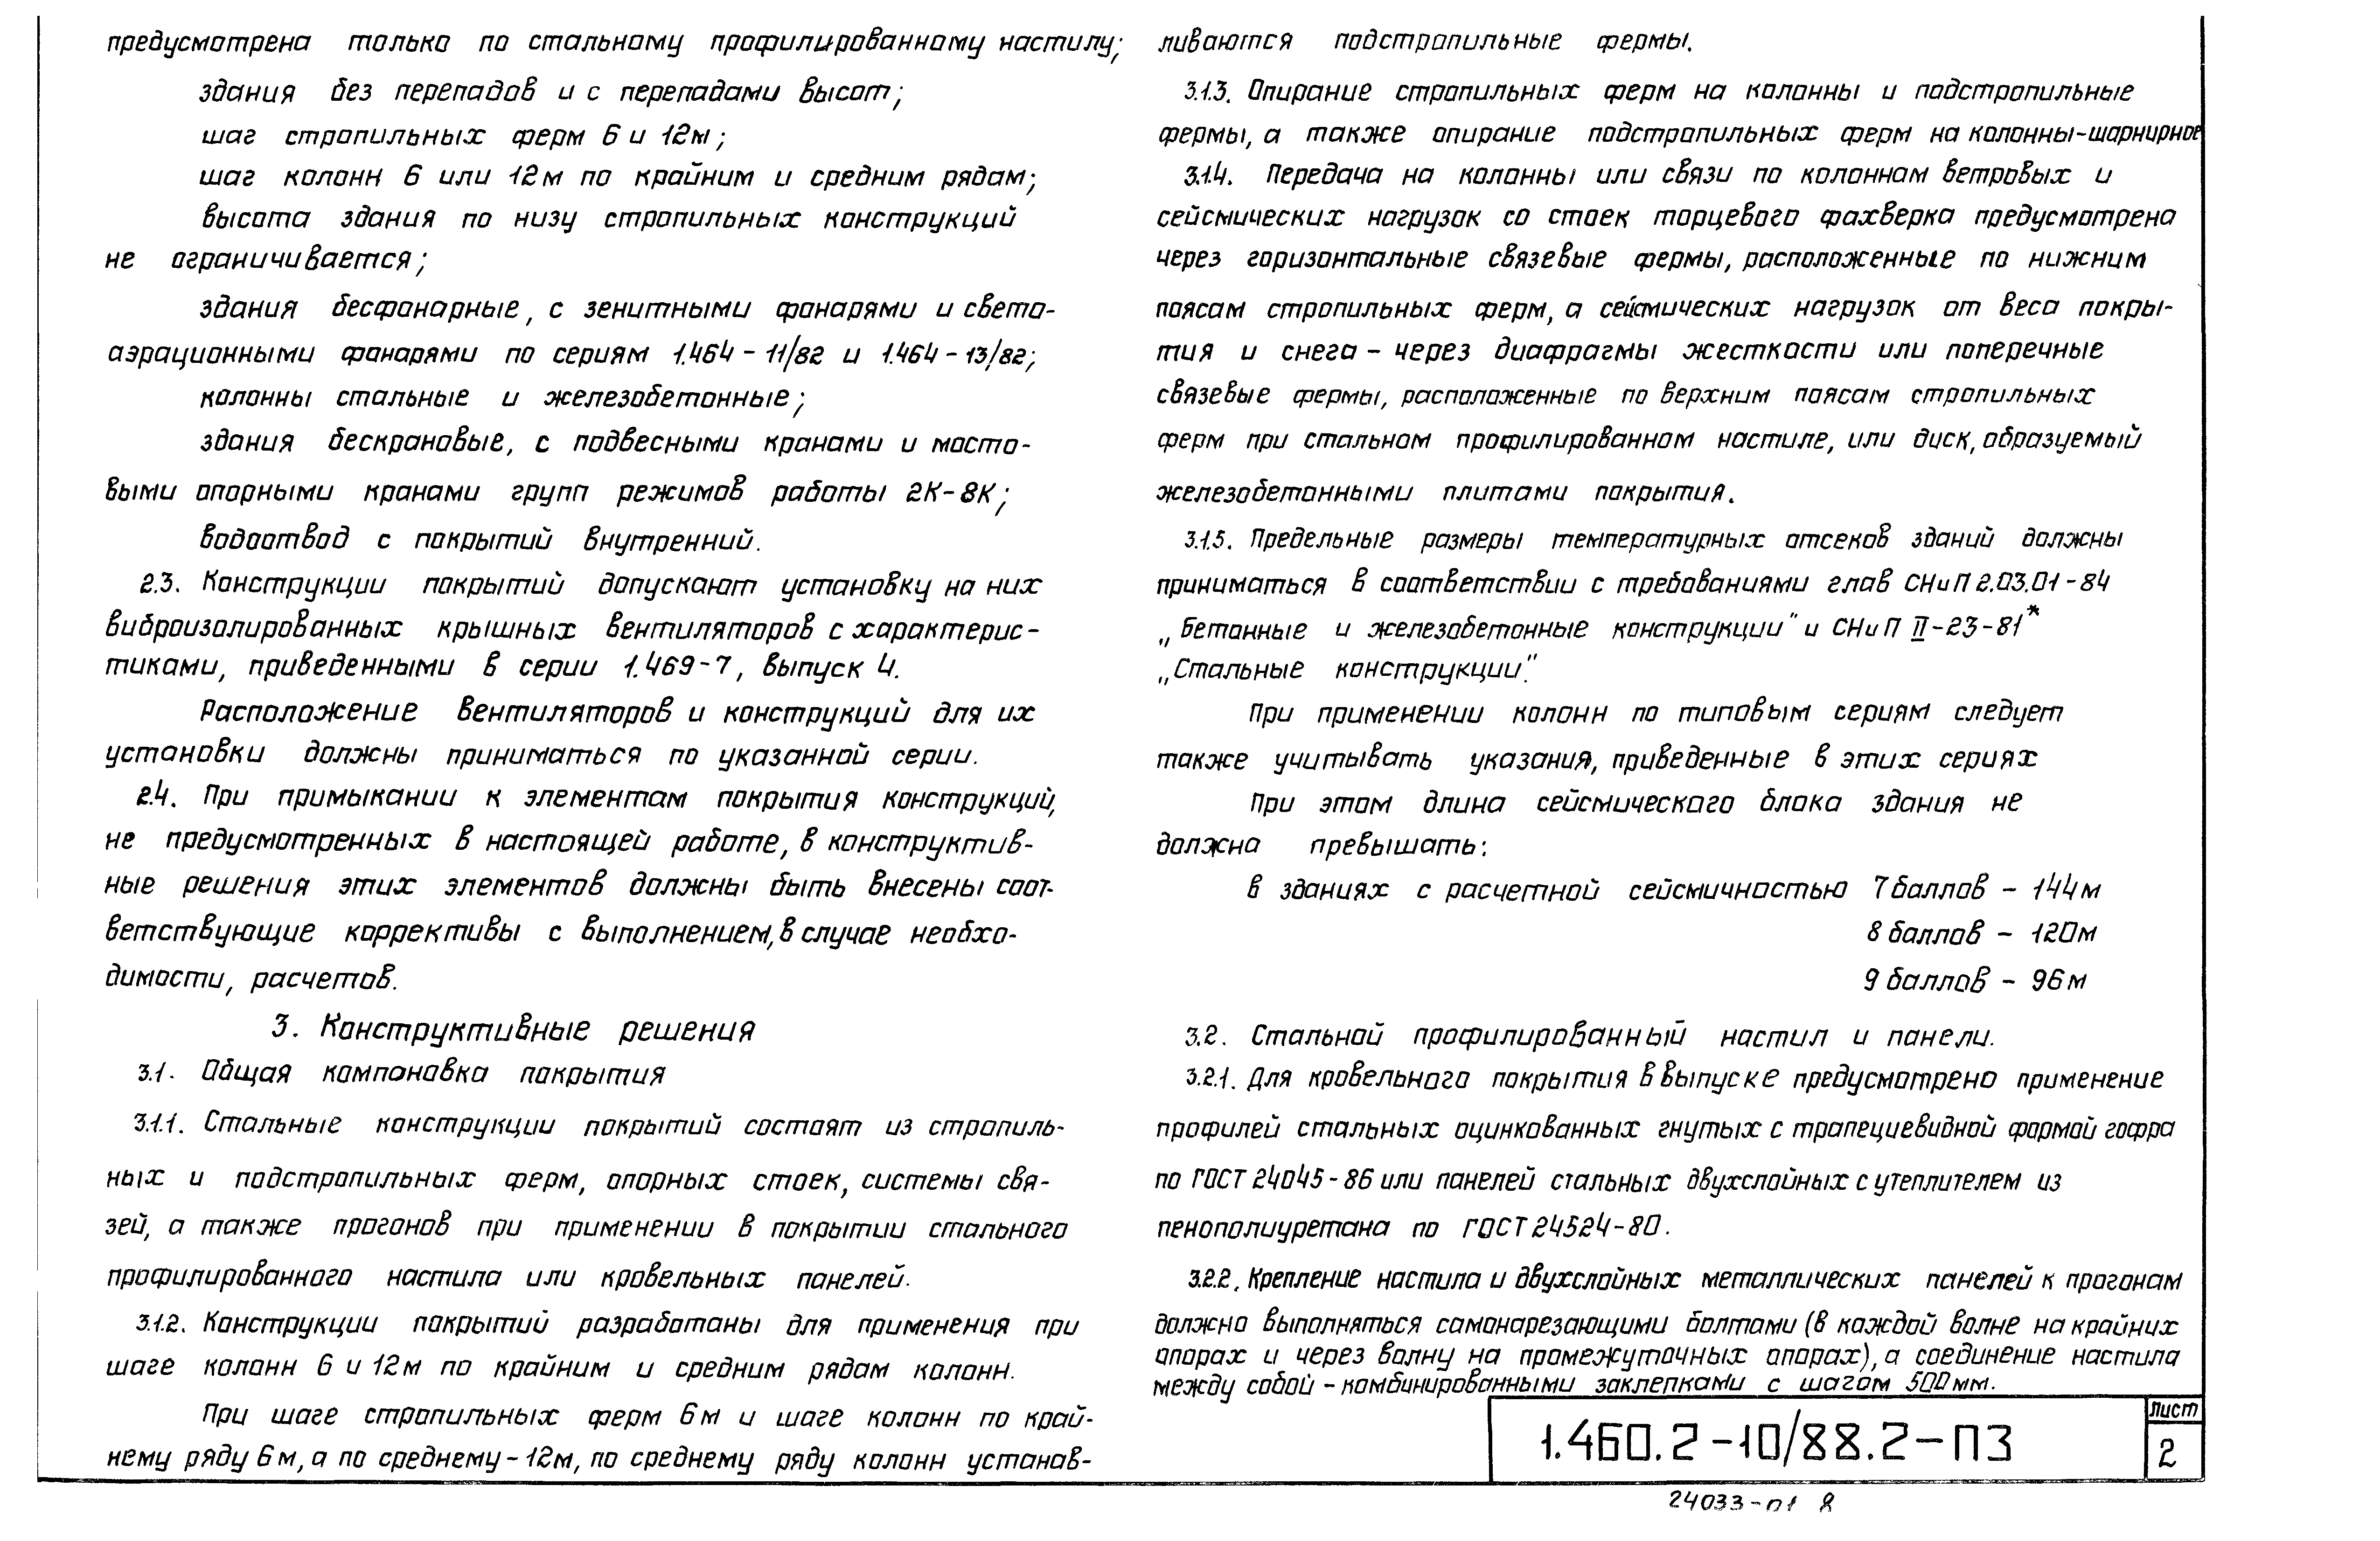 предусмотрена только по стальному профилированному настилу;
здания без перепадов и с перепадами высот;
шаг стропильных ферм 6 и 12м;
шаг колонн 6 или 12м по крайним и средним рядам;
высота здания по низу стропильных конструкций
не ограничивается;
здания бесфонарные, с зенитными фонарями и свето-
аэрационными фонарями по сериям 1.464-11/82 и 1.464-13/82;
колонны стальные и железобетонные;
здания бескрановые, с подвесными кранами и мосто-
выми опорными кранами групп режимов работы 2К-8К;
водоотвод с покрытий внутренний.
2.3. Конструкции покрытий допускают установку на них
виброизолированных крышных вентиляторов с характерис-
тиками, приведенными в серии 1.469-7, выпуск 4.
Расположение вентиляторов и конструкций для их
установки должны приниматься по указанной серии.
2.4. При примыкании к элементам покрытия конструкций,
не предусмотренных в настоящей работе, в конструктив-
ные решения этих элементов должны быть внесены соот-
ветствующие коррективы с выполнением, в случае необхо-
димости, расчетов.
3. Конструктивные решения
3.1. Общая компоновка покрытия
3.1.1. Стальные конструкции покрытий состоят из стропиль-
ных и подстропильных ферм, опорных стоек, системы свя-
зей, а также прогонов при применении в покрытии стального
профилированного настила или кровельных панелей.
3.1.2. Конструкции покрытий разработаны для применения при
шаге колонн 6 и 12м по крайним и средним рядам колонн.
При шаге стропильных ферм 6м и шаге колонн по край-
нему ряду 6м, а по среднему-12м, по среднему ряду колонн устанав-
ливаются подстропильные фермы.
3.1.3. Опирание стропильных ферм на колонны и подстропильные
фермы, а также опирание подстропильных ферм на колонны-шарнирное
3.1.4. Передача на колонны или связи по колоннам ветровых и
сейсмических нагрузок со стоек торцевого фахверка предусмотрена
через горизонтальные связевые фермы, расположенные по нижним
поясам стропильных ферм, а сейсмических нагрузок от веса покры-
тия и снега - через диафрагмы жесткости или поперечные
связевые фермы, расположенные по верхним поясам стропильных
ферм при стальном профилированном настиле, или диск, образуемый
железобетонными плитами покрытия.
3.1.5. Предельные размеры температурных отсеков зданий должны
приниматься в соответствии с требованиями глав СНиП 2.03.01-84
„Бетонные и железобетонные конструкции" и СНиП II-23-81*
„Стальные конструкции".
При применении колонн по типовым сериям следует
также учитывать указания, приведенные в этих сериях
При этом длина сейсмического блока здания не
должна превышать:
в зданиях с расчетной сейсмичностью 7 баллов - 144м
8 баллов - 120м
9 баллов - 96м
3.2. Стальной профилированный настил и панели.
3.2.1. Для кровельного покрытия в выпуске предусмотрено применение
профилей стальных оцинкованных гнутых с трапециевидной формой гофра
по ГОСТ 24045-86 или панелей стальных двухслойных с утеплителем из
пенополиуретана по ГОСТ 24524-80.
3.2.2. Крепление настила и двухслойных металлических панелей к прогонам
должно выполняться самонарезающими болтами (в каждой волне на крайних
опорах и через волну на промежуточных опорах), а соединение настила
между собой - комбинированными заклепками с шагом 500мм.
1.460.2-10/88.2-ПЗ
Лист
2
24033-01 8